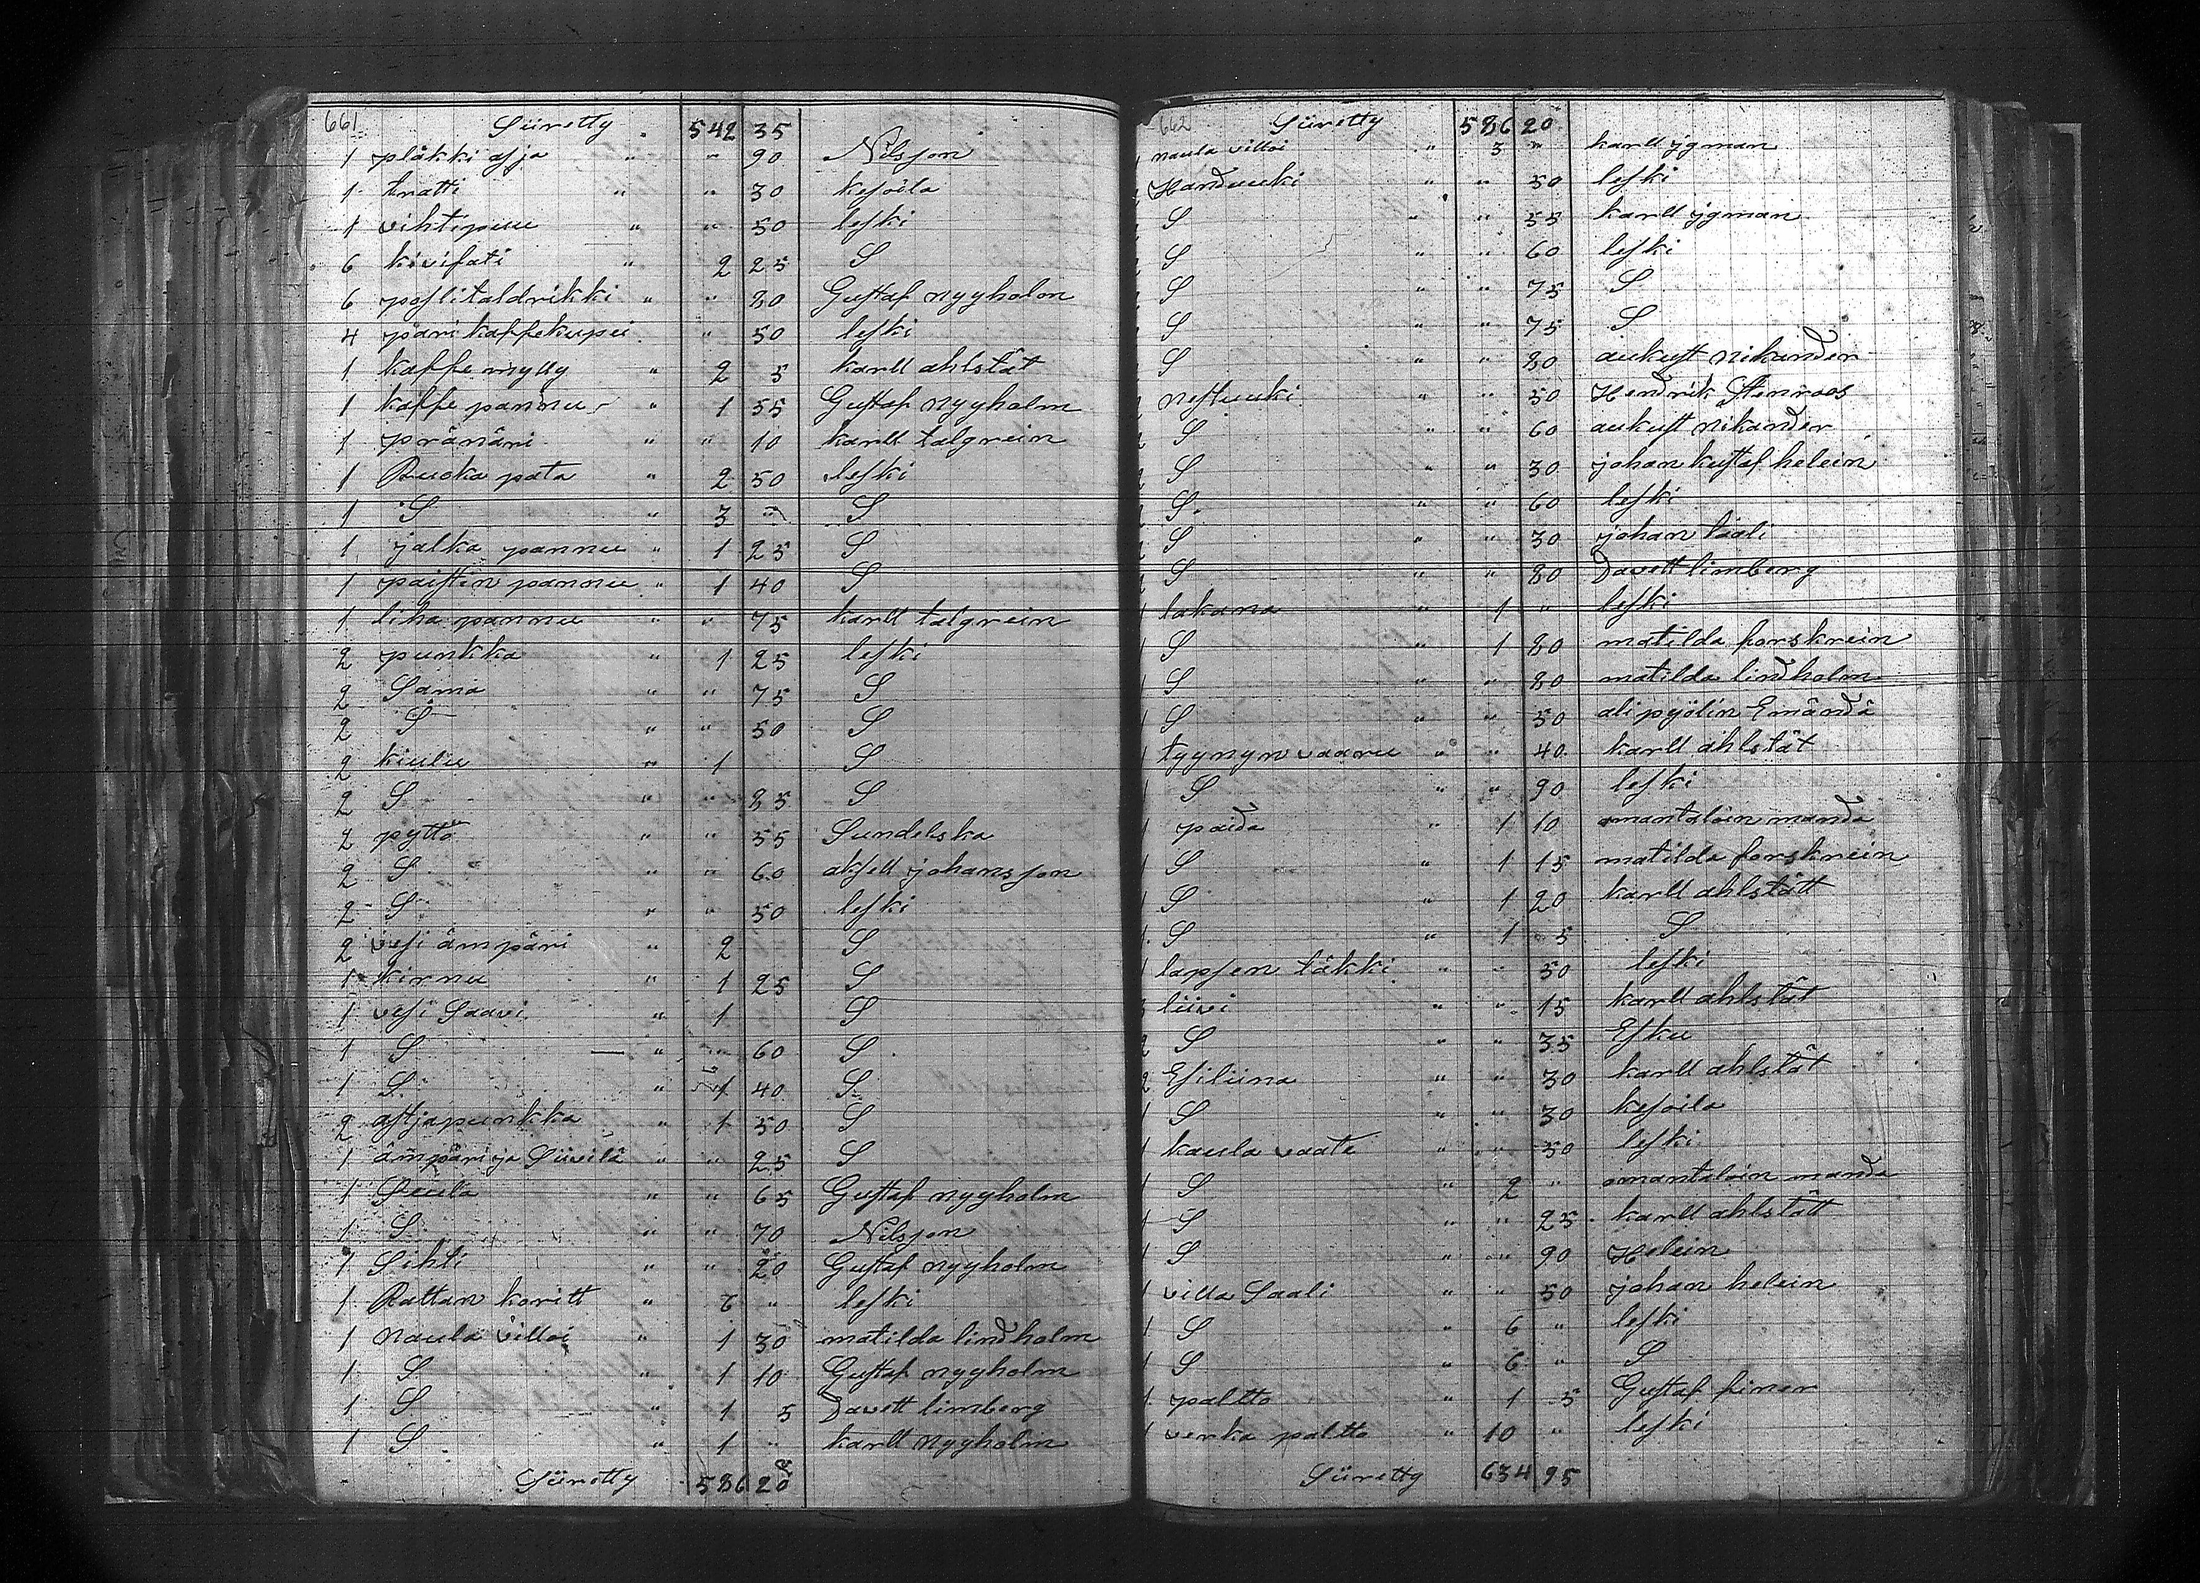 661 Siiretty 542 35
1 pläkki asja " " 90 Nilsson
1 tratti " " 30 kesoila
1 vihtipuu " " 50 leski
6 kivifati " 2 25 S
6 poslitaldrikki " " 80 Gustaf nygholm
4 pärikaffekupei " 50 leski
1 kaffe mylly " 2 5 karll ahlstät
1 kaffe pannu " 1 55 Gustaf nygholm
1 pränäri " " 10 karll talgrein
1 Ruoka pata " 2 50 leski
1 S " 3 " S
1 jalka pannu " 1 25 S
1 paisten pannu " 1 40 S
1 liha pannu " " 75 karll talgrein
2 punkka " 1 25 leski
2 Sama " " 75 S
2 S " " 50 S
2 kiulu " 1 S
2 S " " 85 S
2 pytto " " 55 Sundelska
2 S " " 60 aksell johansson
2 S " " 50 leski
2 vesi ämpäri " 2 S
1 kirnu " 1 25 S
1 vesi Saavi " 1 S
1 S " " 60 S
1 S " 1 40 S
2 astjapunkka " 1 50 S
1 ämpäri ja Siivilä " " 25 S
1 Seula " " 65 Gustaf nygholm
1 S " " 70 Nilsson
1 Sihti " " 20 Gustaf nygholm
1 Rattan koritt " 6 " leski
1 naula villoi " 1 30 matilda lindholm
1 S " 1 10 Gustaf nygholm
1 S " 1 5 Davett limberg
1 S " 1 " karll nygholm
Siiretty 586 20
662 Siiretty 586 20
naula villoi " 3 " karll ygman
Harduuki " " 50 leski
S " " 55 karll ygman
S " " 60 leski
S " " 75 S
S " " 75 S
S " " 80 aukust nikander
nestuuki " " 50 Hendrik Stenroos
S " " 60 aukust nikander
S " " 30 johan kustaf helein
S " " 60 leski
S " " 30 johan taali
S " " 80 Davett limberg
lakana " 1 " leski
S " 1 80 matilda forskrein
S " " 80 matilda lindholm
S " " 50 alipyölin Emändä
tyynyn vaaru " " 40 karll ahlstät
S " " 90 leski
paida " 1 10 mantaloin manda
S " 1 15 matilda forskrein
S " 1 20 karll ahlstätt
S " 1 5 S
lapsen täkki " " 50 leski
liivi " " 15 karll ahlstät
S " " 35 Esku
Esiliina " " 30 karll ahlstät
S " " 30 kesoila
kaula vaate " " 50 leski
S " 2 " mantaloin manda
S " " 25 karll ahlstätt
S " " 90 Helein
villa Saali " " 50 johan helein
S " 6 " leski
S " 6 " S
paltto " 1 5 Gustaf finer
verka paltto " 10 " leski
Siiretty 634 95